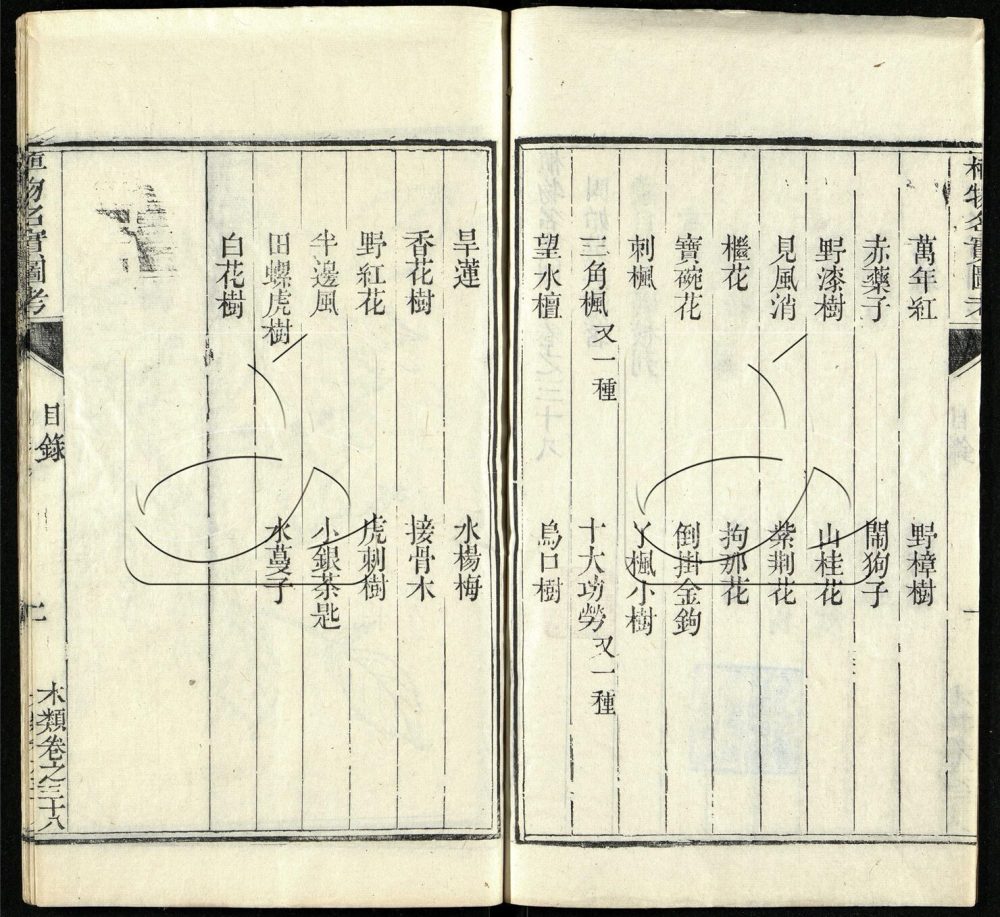 植物名實圖考
萬年紅 野樟樹
赤藥子 鬧狗子
野漆樹 山桂花
見風消 紫荆花
檵花 拘那花
寶碗花 倒掛金鉤
刺楓 丫楓小樹
三角楓又一種 十大功勞又一種
望水檀 烏口樹
旱蓮 水楊梅
香花樹 接骨木
野紅花 虎刺樹
半邊風 小銀茶匙
田螺虎樹 水蔓子
白花樹
植物名實圖考 目錄 木類卷之三十八